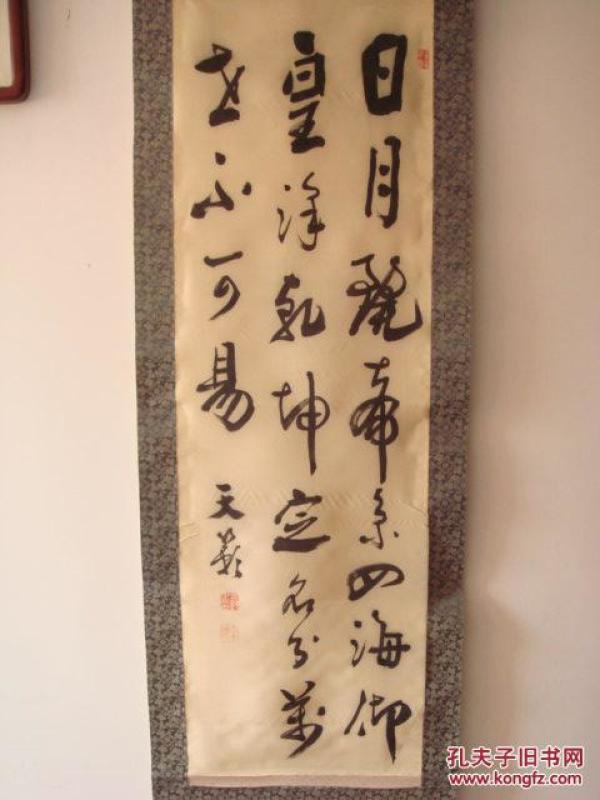 日月麗帝系四海御
皇澤乾坤定名分萬
世不可易
天
孔夫子旧书网
www.kongfz.com